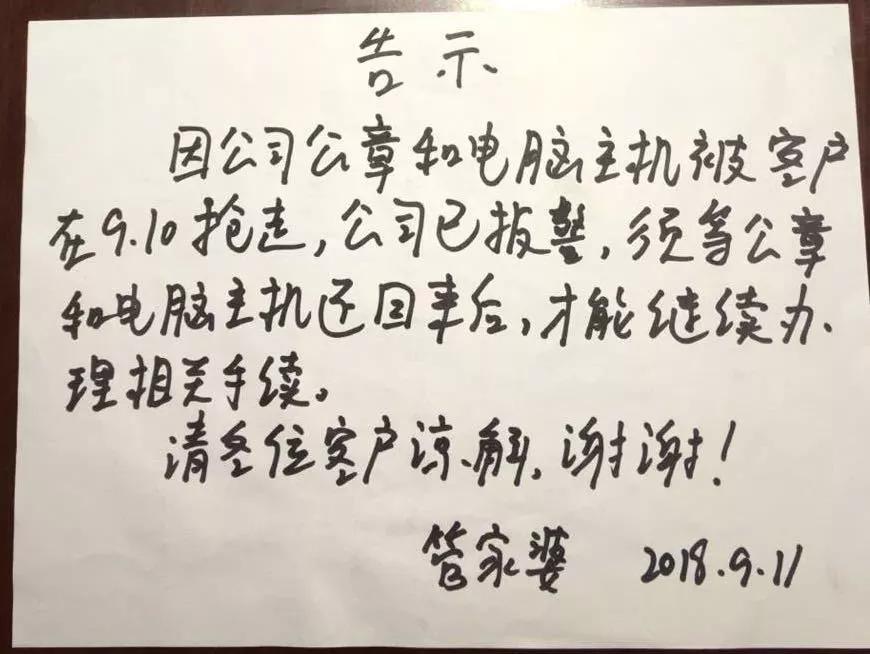 告示
因公司公章和电脑主机被客户
在9.10抢走,公司已报警,须等公章
和电脑主机还回来后,才能继续办
理相关手续。
请各位客户谅解,谢谢!
管家婆 2018.9.11